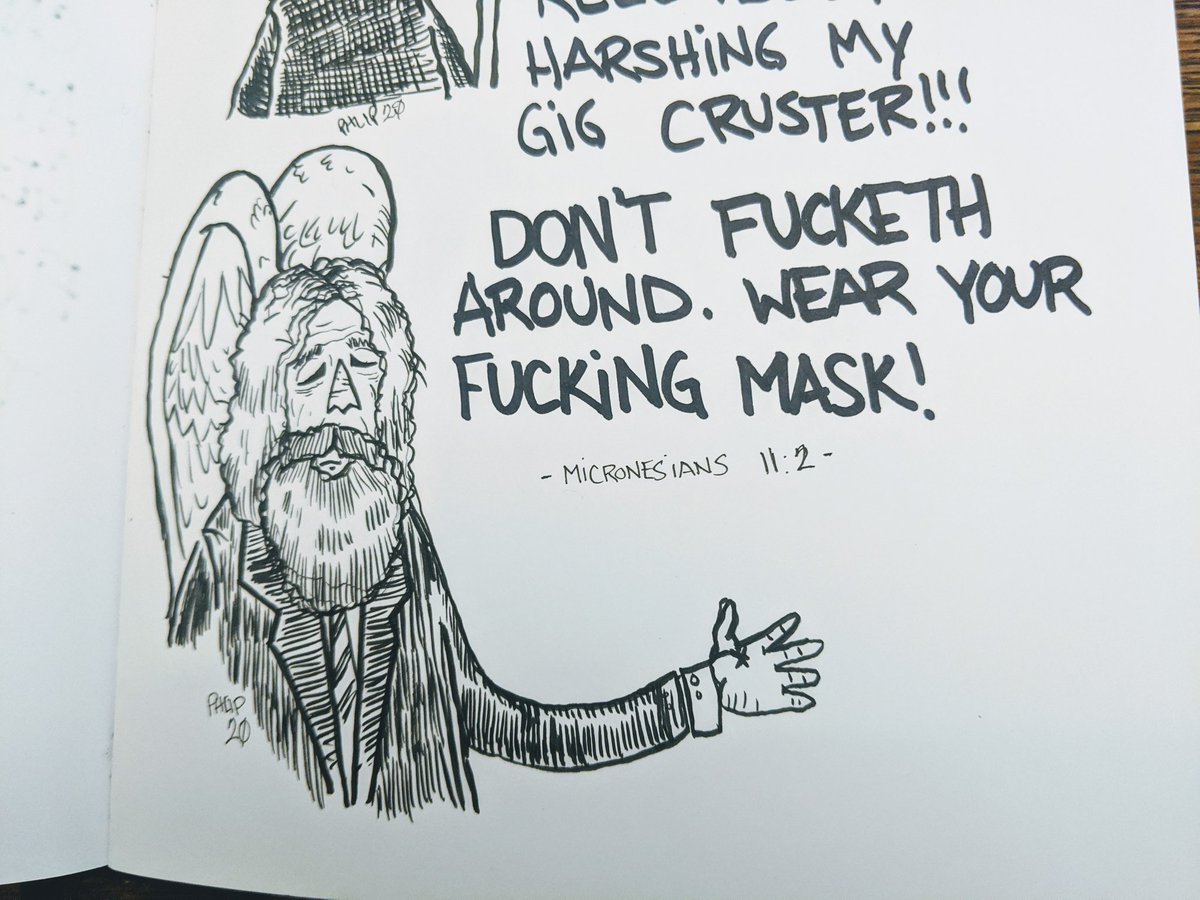 HARSHING MY
GIG CRUSTER!!!
PHLIP 20
DON'T FUCKETH
AROUND. WEAR YOUR
FUCKING MASK!
- MICRONESIANS 11:2 -
PHLIP
20